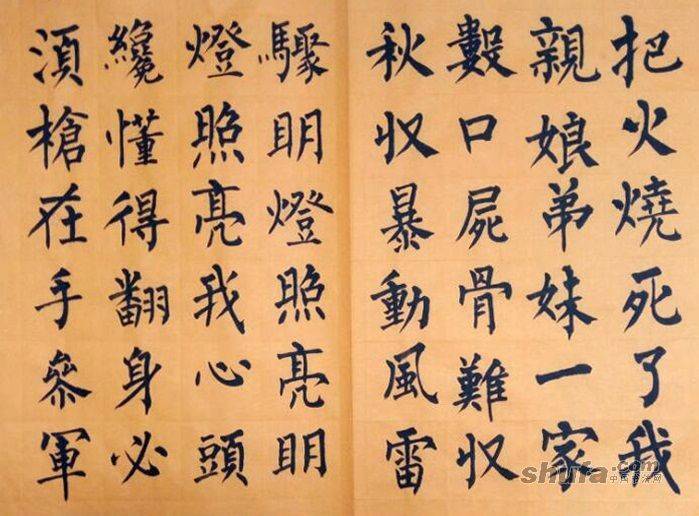 把火燒死了我
親娘弟妹一家
數口屍骨難收
秋收暴動風雷
驟明燈照亮明
燈照亮我心頭
纔懂得翻身必
須槍在手參軍
shufa.com
中国书法网